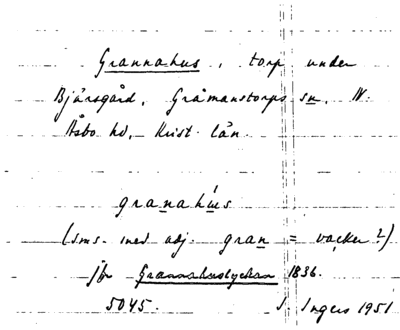 Grannahus, torp under
Bjärsgård, Gråmanstorps sn, N.
Åsbo hd, Krist. län.
granahús
(sms. med adj. gran = vacker?)
jfr Grannahuslyckan 1836.
5045. I. Ingers 1951